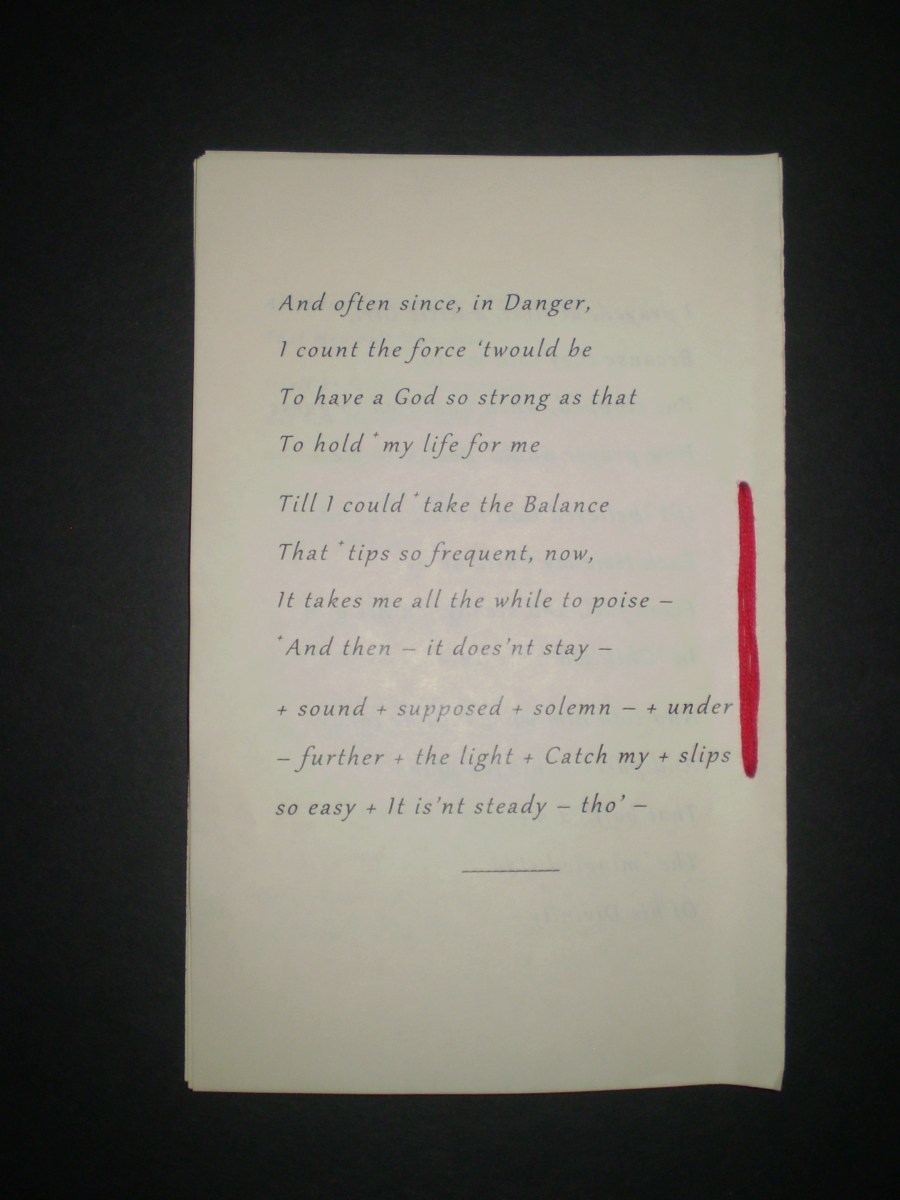 And often since, in Danger,
I count the force ‘twould be
To have a God so strong as that
To hold +my life for me
Till I could +take the Balance
That +tips so frequent, now,
It takes me all the while to poise –
+And then – it does’nt stay –
+ sound + supposed + solemn – + under
– further + the light + Catch my + slips
so easy + It is’nt steady – tho’ –